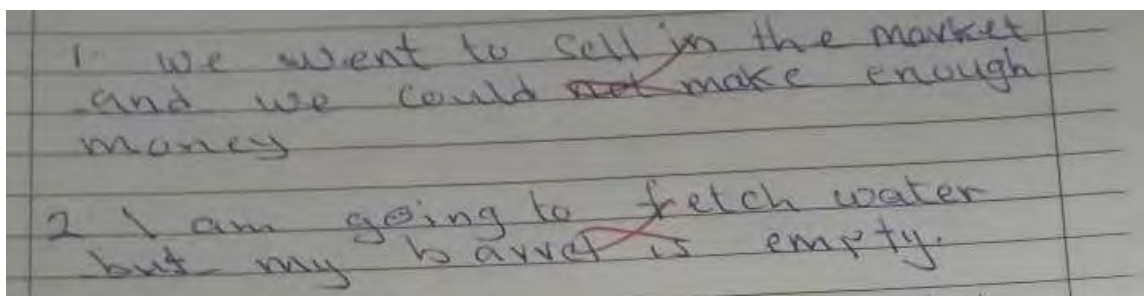 1. we went to sell in the market
and we could not make enough
money
2 I am going to fetch water
but my barrel is empty.